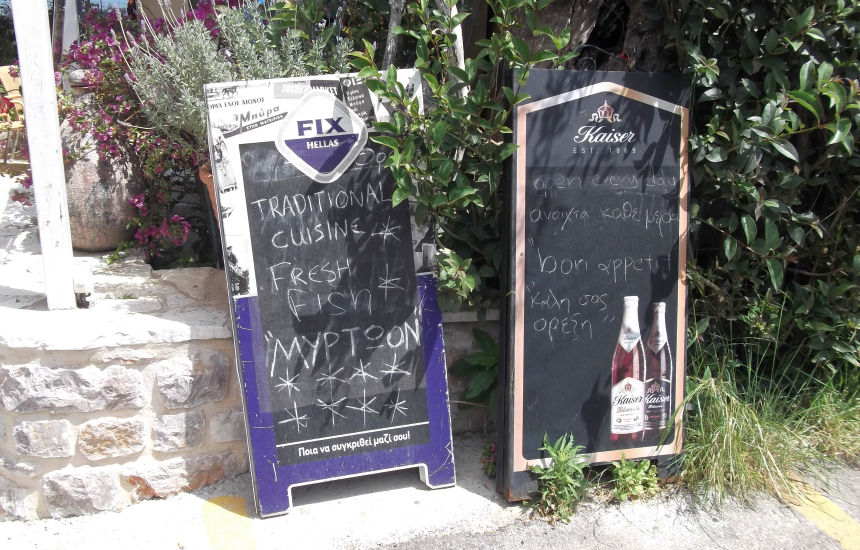 FIX
HELLAS
TRADITIONAL
CUISINE
FRESH
FISH
"ΜΥΡΤΩΟΝ"
Ποια να συγκριθεί μαζί σου!
Kaiser
EST. 1869
open every day
ανοιχτα καθε μερα
"bon appetit
"καλη σας
ορεξη"
Kaiser
Kaiser